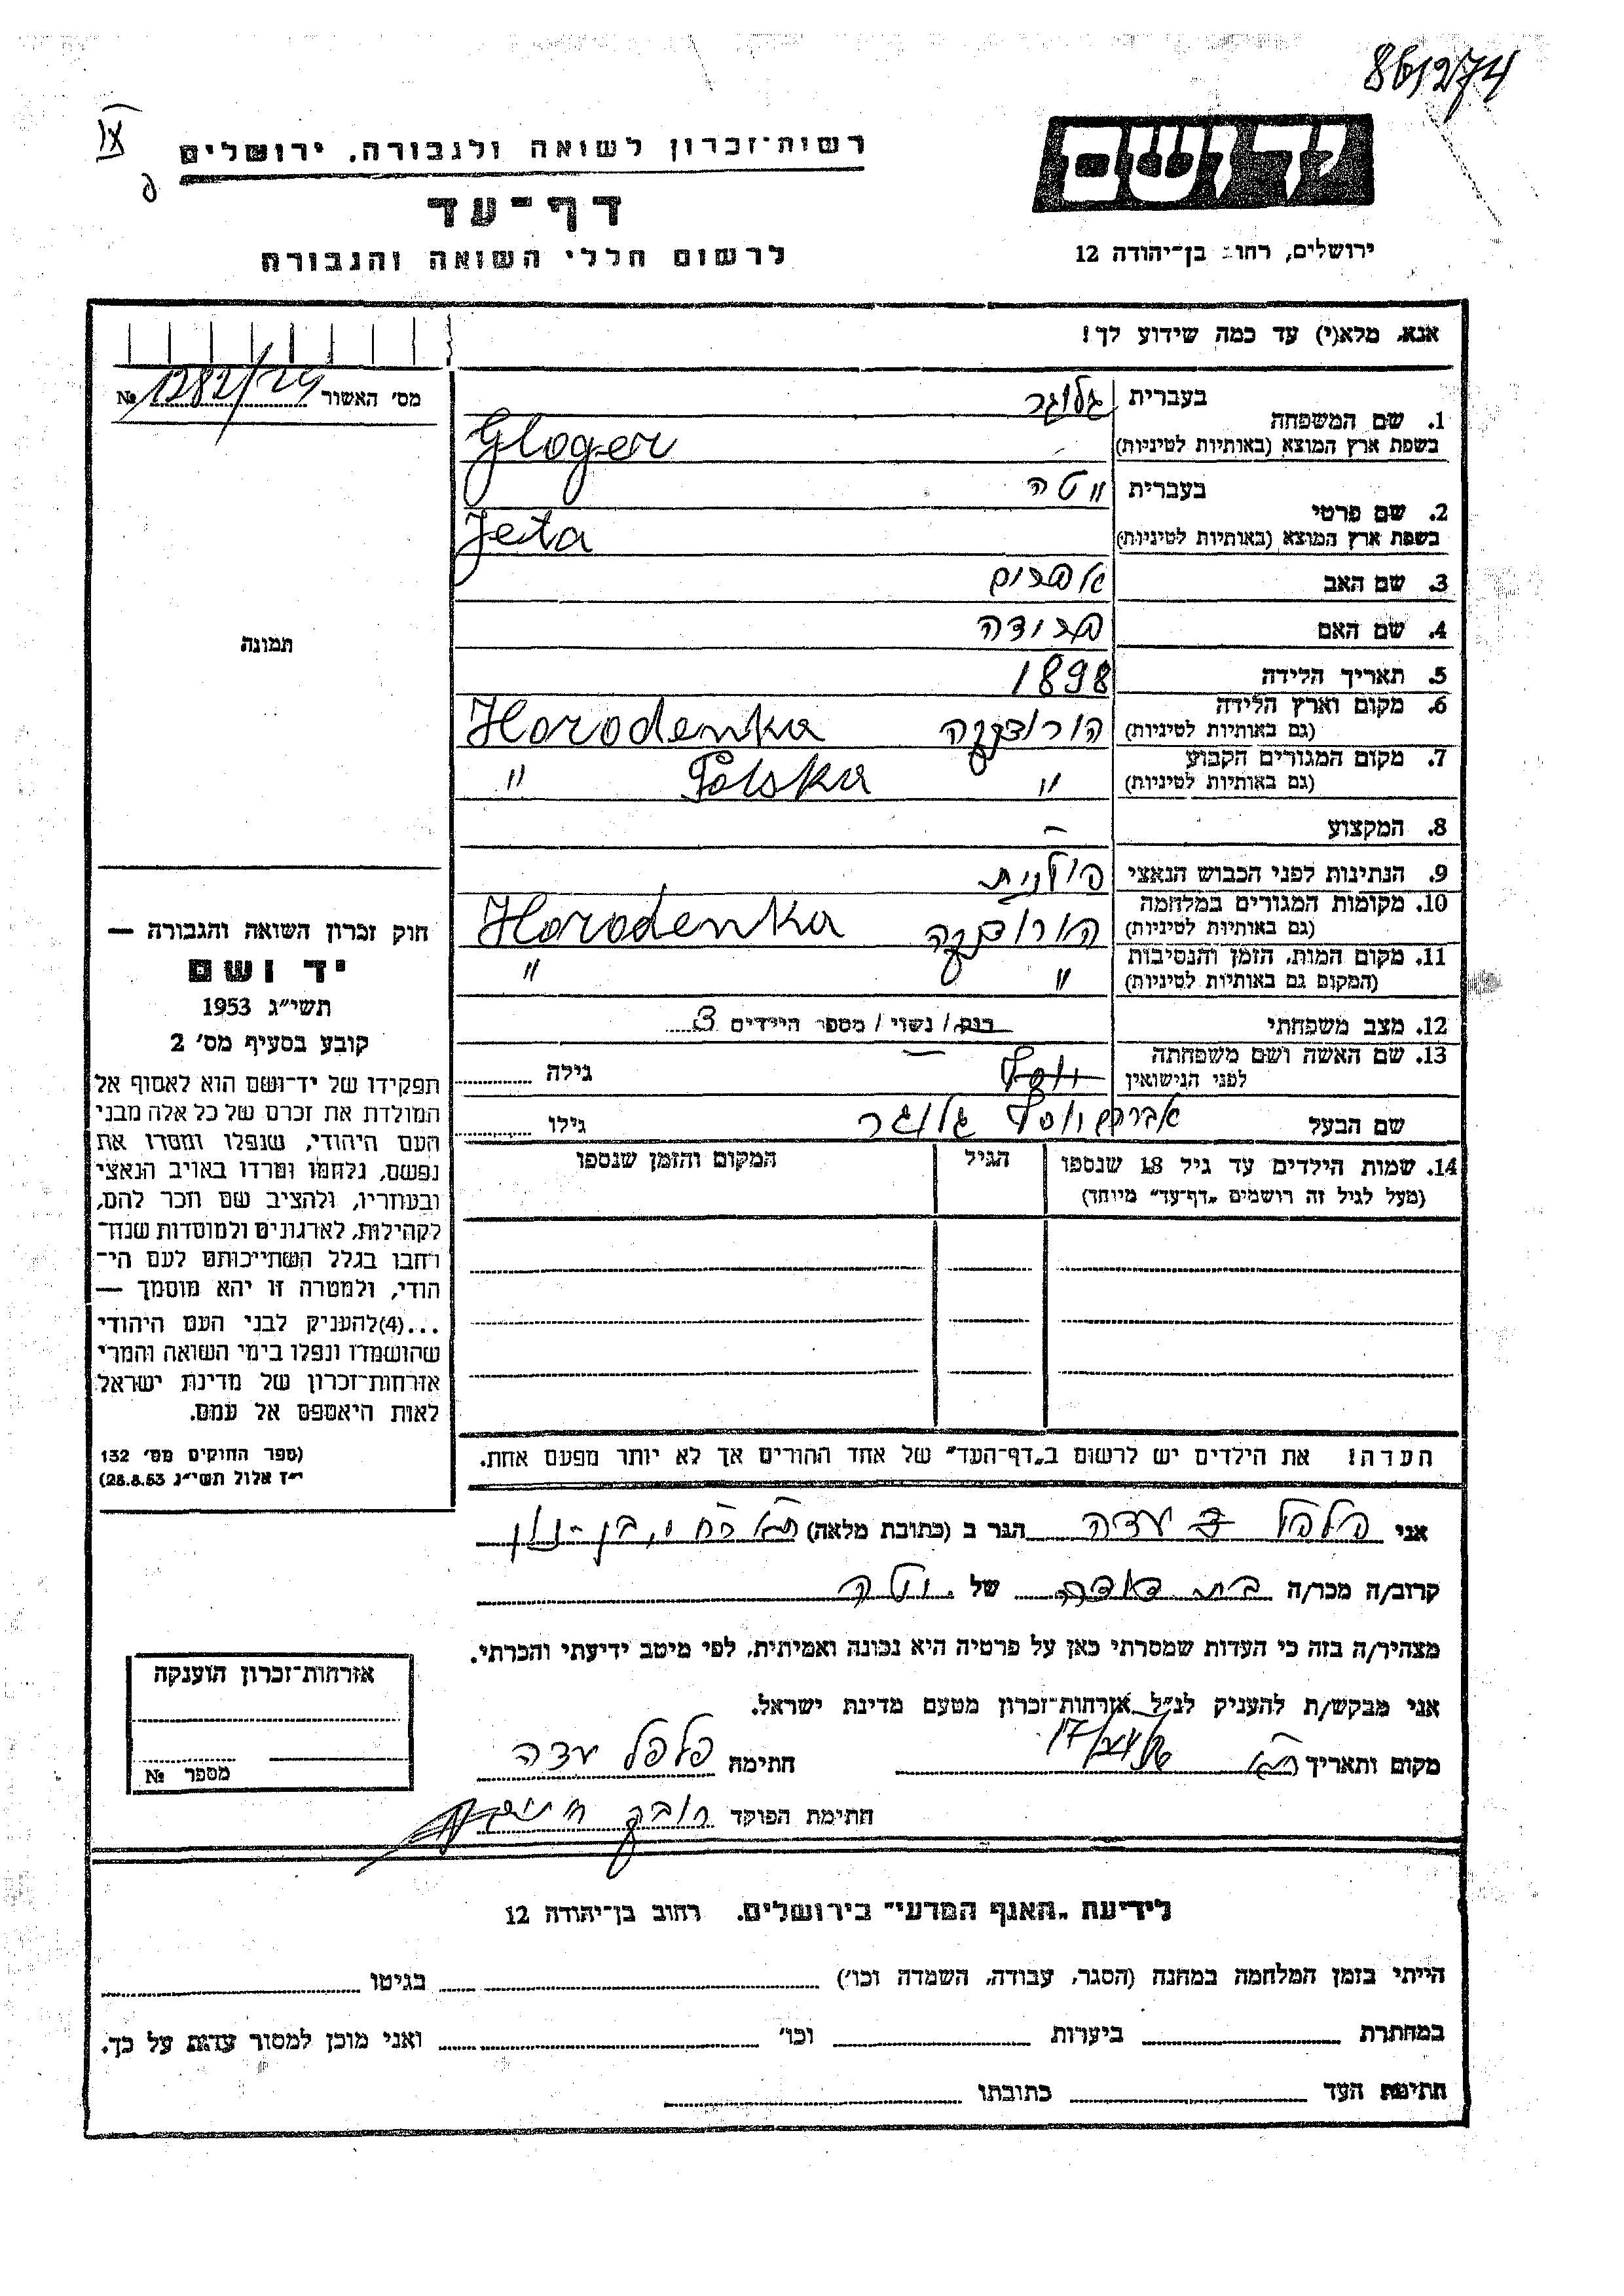 861274
IX
רשות־זכרון לשואה ולגבורה, ירושלים
דף־עד
לרשום חללי השואה והגבורה
יד ושם
ירושלים, רחוב בן־יהודה 12
אנא, מלא(י) עד כמה שידוע לך!
מס׳ האשור № 1282/24
1. שם המשפחה
בעברית גלוגר
בשפת ארץ המוצא (באותיות לטיניות) Gloger
2. שם פרטי
בעברית יטה
בשפת ארץ המוצא (באותיות לטיניות) Jeta
3. שם האב אפרים
4. שם האם פרודה
5. תאריך הלידה 1898
6. מקום וארץ הלידה
(גם באותיות לטיניות) הורודנקה Horodenka
7. מקום המגורים הקבוע
(גם באותיות לטיניות) " Polska "
8. המקצוע –
9. הנתינות לפני הכבוש הנאצי פולנית
10. מקומות המגורים במלחמה
(גם באותיות לטיניות) הורודנקה Horodenka
11. מקום המות, הזמן והנסיבות
(המקום גם באותיות לטיניות) " "
12. מצב משפחתי רווק/ נשוי/ מספר הילדים 3
13. שם האשה ושם משפחתה
לפני הנישואין יוסף גילה
שם הבעל יוסף גלוגר גילו
14. שמות הילדים עד גיל 18 שנספו
(מעל לגיל זה רושמים „דף־עד" מיוחד)
הגיל
המקום והזמן שנספו
הערה! את הילדים יש לרשום ב„דף־העד" של אחד ההורים אך לא יותר מפעם אחת.
תמונה
חוק זכרון השואה והגבורה —
יד ושם
תשי״ג 1953
קובע בסעיף מס׳ 2
תפקידו של יד־ושם הוא לאסוף אל
המולדת את זכרם של כל אלה מבני
העם היהודי, שנפלו ומסרו את
נפשם, נלחמו ומרדו באויב הנאצי
ובעוזריו, ולהציב שם וזכר להם,
לקהילות, לארגונים ולמוסדות שנח־
רחבו בגלל השתייכותם לעם הי־
הודי, ולמטרה זו יהא מוסמך —
...(4)להעניק לבני העם היהודי
שהושמדו ונפלו בימי השואה והמרי
אזרחות־זכרון של מדינת ישראל
לאות היאספם אל עמם.
(ספר החוקים מס׳ 132
י״ז אלול תשי״ג 28.8.53)
אני פלפל עדה הגר ב (כתובת מלאה) בן־נון
קרוב/ה מכר/ה בת דודה של יטה
מצהיר/ה בזה כי העדות שמסרתי כאן על פרטיה היא נכונה ואמיתית, לפי מיטב ידיעתי והכרתי.
אני מבקש/ת להעניק לנ״ל אזרחות־זכרון מטעם מדינת ישראל.
מקום ותאריך חתימה פלפל עדה
חתימת הפוקד
אזרחות־זכרון הוענקה
מספר №
לידיעת „האגף המדעי" בירושלים, רחוב בן־יהודה 12
הייתי בזמן המלחמה במחנה (הסגר, עבודה, השמדה וכו׳) בגיטו
במחתרת ביערות וכו׳ ואני מוכן למסור עדות על כך.
חתימת העד כתובתו